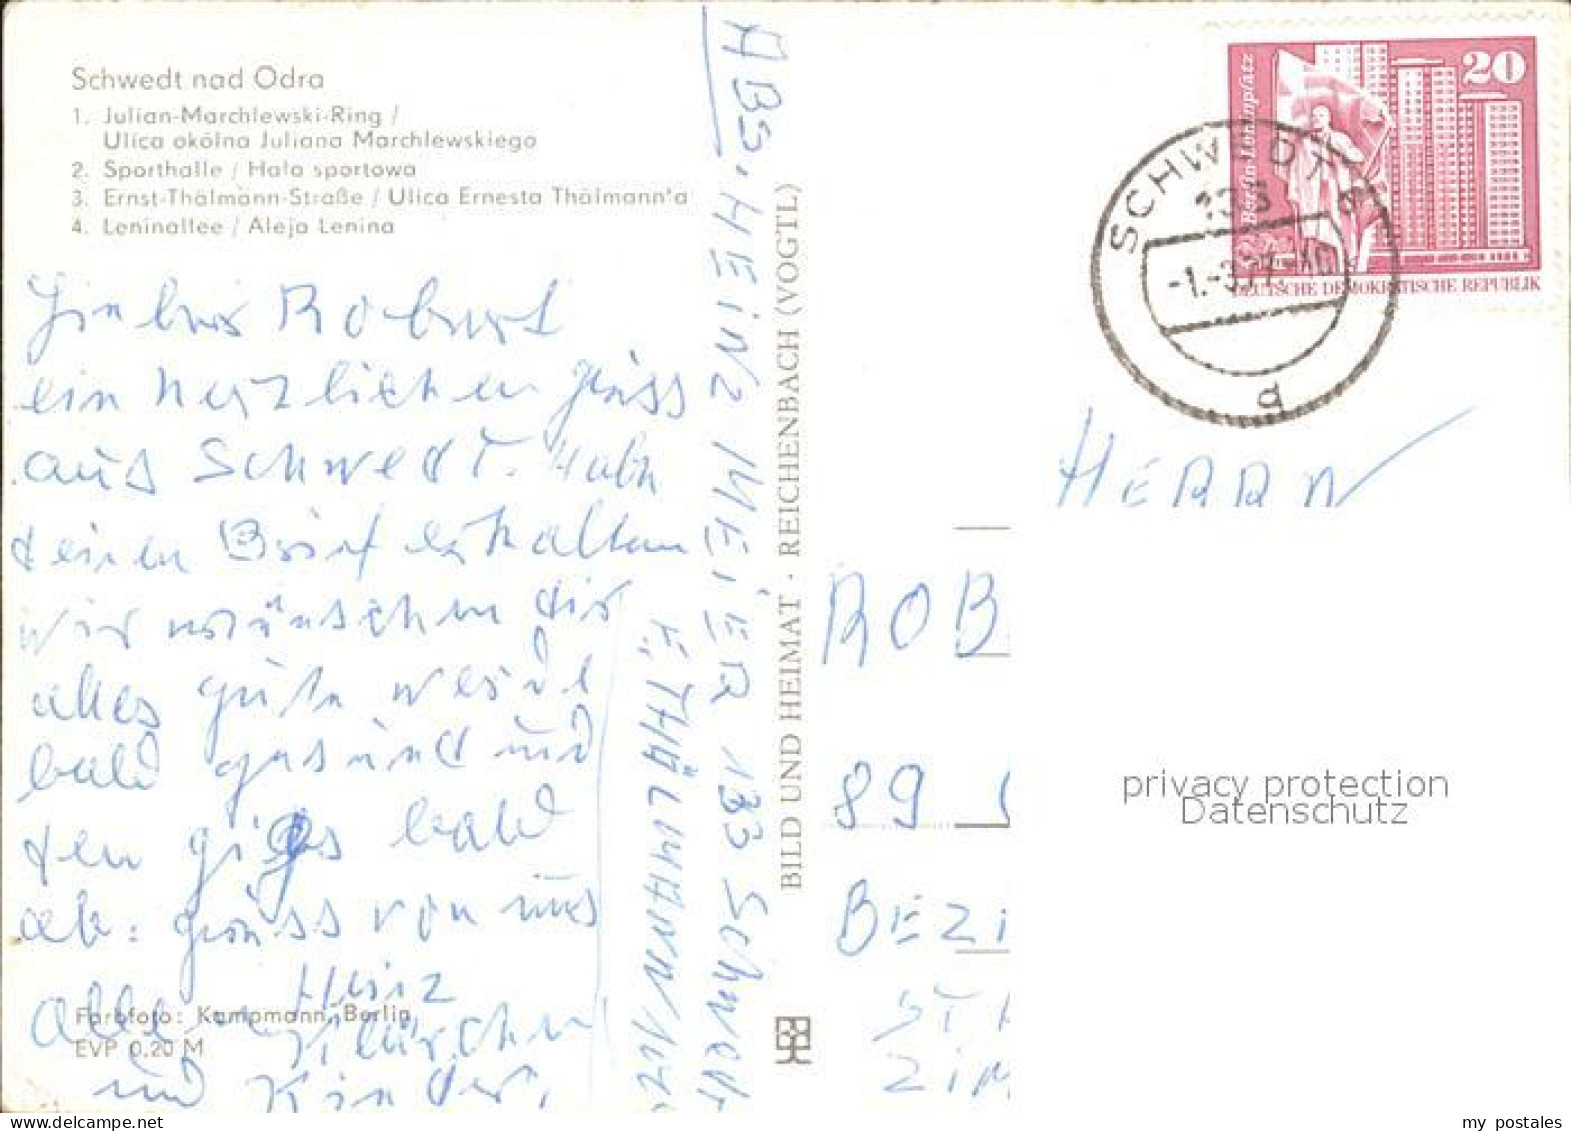 Schwedt nad Odra
1. Julian-Marchlewski-Ring /
Ulica okólna Juliana Marchlewskiego
2. Sporthalle / Hala sportowa
3. Ernst-Thälmann-Straße / Ulica Ernesta Thälmann'a
4. Leninallee / Aleja Lenina
Robert
ein herzlichen Grüss
aus Schwedt. Habn
deinen Brief erhalten
wir wünschen dir
alles gute werde
bald gesund und
den gips bald
ab: grüss von uns
Allen Heinz
Klärchen
und Kinder,
Farbfoto: Kampmann, Berlin
EVP 0.20 M
ABS. HEINZ MEIER 133 Schwedt
E. THÄLMANN
BILD UND HEIMAT · REICHENBACH (VOGTL)
20
Berlin-Leninplatz
DEUTSCHE DEMOKRATISCHE REPUBLIK
SCHWEDT
133
HERRN
ROB
89
BEZI
ST
ZIM
privacy protection
Datenschutz
my postales